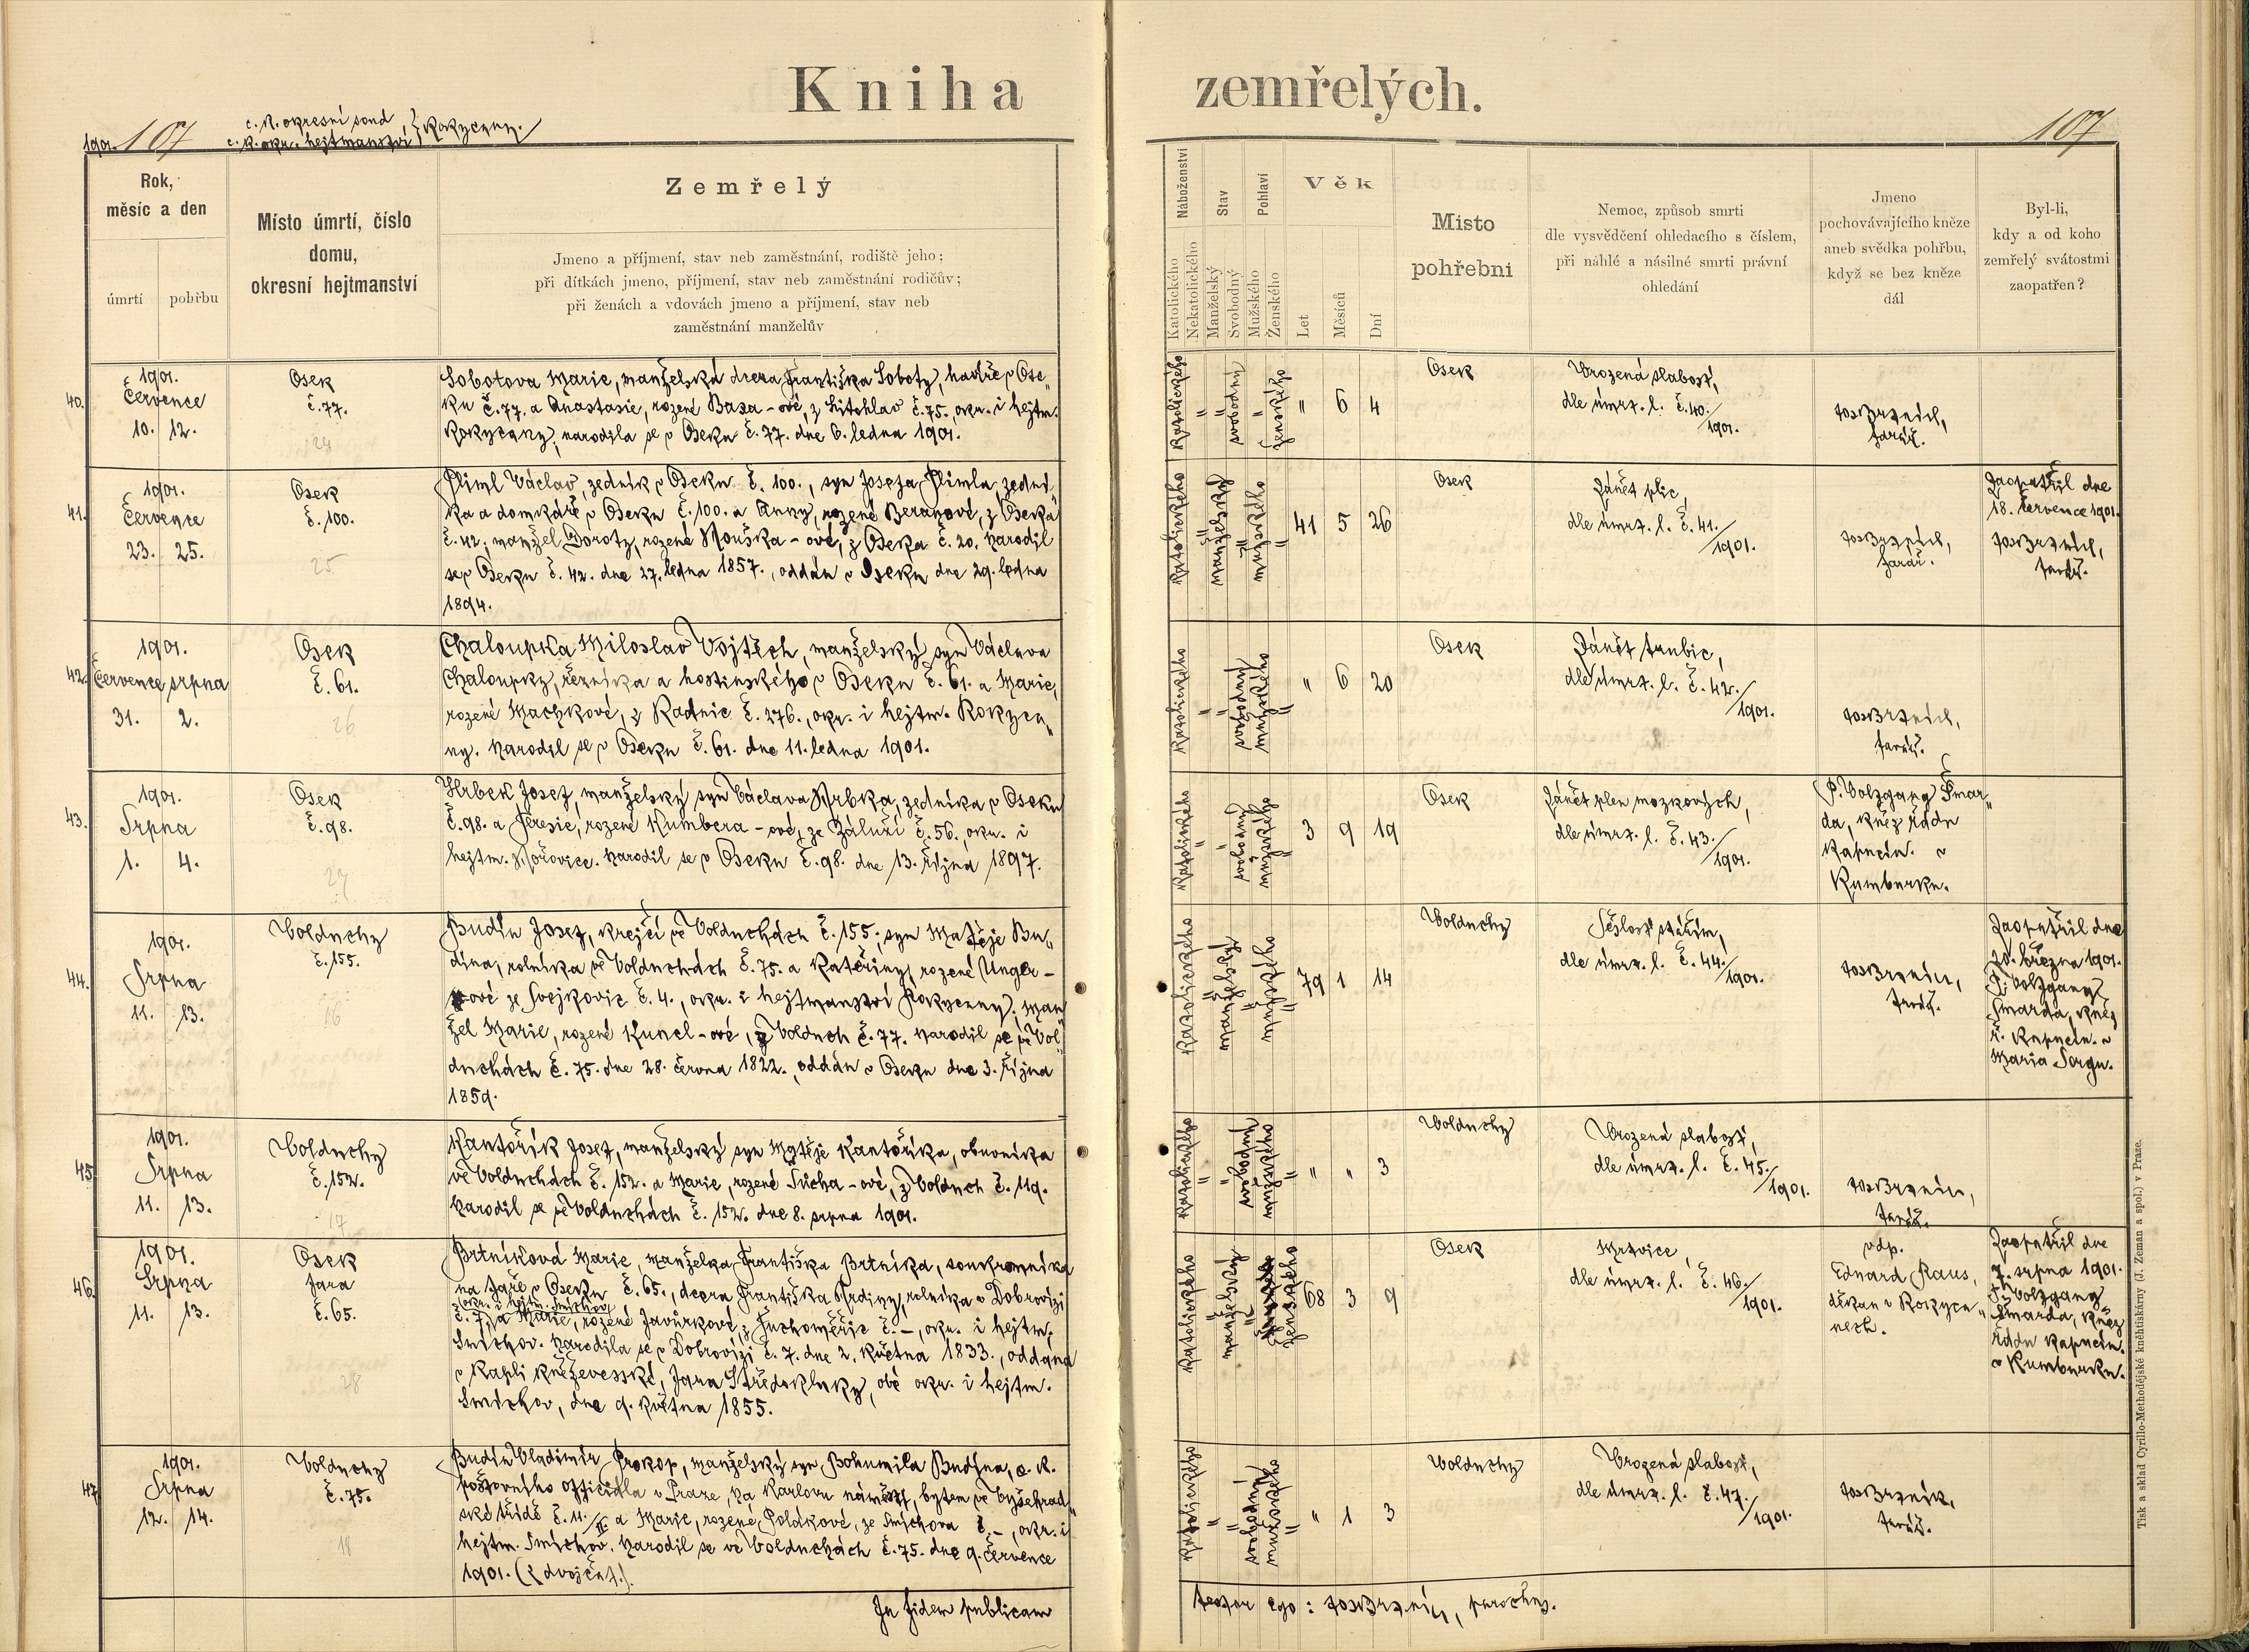 Kniha zemřelých.
1901. 107
c. k. okresní soud
c. k. okr. hejtmanství } Rokycany.
107
Rok,
měsíc a den
úmrtí
pohřbu
Místo úmrtí, číslo
domu,
okresní hejtmanství
Zemřelý
Jmeno a příjmení, stav neb zaměstnání, rodiště jeho;
při dítkách jmeno, příjmení, stav neb zaměstnání rodičův;
při ženách a vdovách jmeno a příjmení, stav neb
zaměstnání manželův
Náboženství
Katolického
Nekatolického
Stav
Manželský
Svobodný
Pohlaví
Mužského
Ženského
Věk
Let
Měsíců
Dní
Místo
pohřební
Nemoc, způsob smrti
dle vysvědčení ohledacího s číslem,
při náhlé a násilné smrti právní
ohledání
Jmeno
pochovávajícího kněze
aneb svědka pohřbu,
když se bez kněze
dál
Byl-li,
kdy a od koho
zemřelý svátostmi
zaopatřen?
40.
1901.
Července
10. 12.
Osek
č. 77.
24
Sobotova Marie, manželská dcera Františka Soboty, havíře v Ose„
ku č. 77. a Anastasie, rozené Basa-ové, z Litohlav č. 75., okr. i hejtm.
Rokycany, narodila se v Oseku č. 77. dne 6. ledna 1901.
Katolického
"
svobodný
"
ženského
" 6 4
Osek
Vrozená slabost,
dle úmrt. l. č. 40./1901.
farář.
41.
1901.
Července
23. 25.
Osek
č. 100.
25
Pliml Václav, zedník v Oseku č. 100., syn Josefa Plimla, zední
ka a domkáře v Oseku č. 100. a Anny, rozené Beranové, z Oseka
č. 42; manžel Doroty, rozené Mouška-ové, z Oseka č. 20. Narodil
se v Oseku č. 42. dne 27. ledna 1857., oddán v Oseku dne 29. ledna
1894.
Katolického
"
manželský
"
mužského
"
41 5 26
Osek
Zánět plic,
dle úmrt. l. č. 41./1901.
farář.
Zaopatřil dne
18. července 1901.
farář.
42.
1901.
Července srpna
31. 2.
Osek
č. 61.
26
Chaloupka Miloslav Vojtěch, manželský syn Václava
Chaloupky, řezníka a hostinského v Oseku č. 61. a Marie,
rozené Machkové, z Radnic č. 276., okr. i hejtm. Rokyca„
ny. Narodil se v Oseku č. 61. dne 11. ledna 1901.
Katolického
"
svobodný
mužského
"
" 6 20
Osek
Zánět
dle úmrt. l. č. 42./1901.
farář.
43.
1901.
Srpna
1. 4.
Osek
č. 98.
27
Hrbek Josef, manželský syn Václava Hrbka, zedníka v Oseku
č. 98. a Teresie, rozené Kumbera-ové, ze Záluží č. 56., okr. i
hejtm. Hořovice. Narodil se v Oseku č. 98. dne 13. října 1897.
Katolického
"
svobodný
mužského
"
3 9 19
Osek
Zánět plen mozkových,
dle úmrt. l. č. 43./1901.
P. Wolfgang Šmar„
da, kněz řádu
kapucín. v
Rumburku.
44.
1901.
Srpna
11. 13.
Volduchy
č. 155.
16
Budín Josef, krejčí ve Volduchách č. 155; syn Matěje Bu„
dína, rolníka ve Volduchách č. 75. a Kateřiny, rozené Unger-
ové ze Svejkovic č. 4., okr. i hejtmanství Rokycany; man
žel Marie, rozené Kuncl-ové, z Volduch č. 77. Narodil se ve Vol„
duchách č. 75. dne 28. června 1822., oddán v Oseku dne 3. října
1859.
Katolického
"
manželský
"
mužského
"
79 1 14
Volduchy
Sešlost stářím,
dle úmrt. l. č. 44./1901.
farář.
Zaopatřil dne
20. března 1901.
P. Wolfgang
Šmarda, kněz
ř. kapucín. v
Maria Sorgu.
45.
1901.
Srpna
11. 13.
Volduchy
č. 152.
17
Kantořík Josef, manželský syn Matěje Kantoříka, obuvníka
ve Volduchách č. 152. a Marie, rozené Sucha-ové, z Volduch č. 119.
Narodil se ve Volduchách č. 152. dne 8. srpna 1901.
Katolického
"
svobodný
mužského
"
" " 3
Volduchy
Vrozená slabost,
dle úmrt. l. č. 45./1901.
farář.
46.
1901.
Srpna
11. 13.
Osek
fara
č. 65.
28
Brtníková Marie, manželka Františka Brtníka, soukromníka
na faře v Oseku č. 65., dcera Františka Hrdiny, rolníka v Dobrovízi
okr. i hejtm. Smíchov
č. 7. a Marie, rozené Javůrkové, z Tuchoměřic č. –, okr. i hejtm.
Smíchov. Narodila se v Dobrovízi č. 7. dne 2. května 1833., oddána
v kapli kněževesské, fara Středokluky, obé okr. i hejtm.
Smíchov, dne 9. května 1855.
Katolického
"
manželský
"
ženského
68 3 9
Osek
Mrtvice,
dle úmrt. l. č. 46./1901.
vdp.
Eduard Raus,
děkan v Rokyca„
nech.
Zaopatřil dne
7. srpna 1901.
P. Wolfgang
Šmarda, kněz
řádu kapucín.
v Rumburku.
47.
1901.
Srpna
12. 14.
Volduchy
č. 75.
18
Budín Vladimír Prokop, manželský syn Bohumila Budína, c. k.
poštovního officiála v Praze, na Karlovu náměstí, bytem ve Vyšehrad„
ské třídě č. 11./II. a Marie, rozené Polákové, ze Smíchova č. –, okr. i
hejtm. Smíchov. Narodil se ve Volduchách č. 75. dne 9. července
1901. (z dvojčat.).
Katolického
"
svobodný
mužského
"
" 1 3
Volduchy
Vrozená slabost,
dle úmrt. l. č. 47./1901.
farář.
In fidem publicam
testor ego: parochus.
Tisk a sklad Cyrillo-Methodějské kněhtiskárny (J. Zeman a spol.) v Praze.